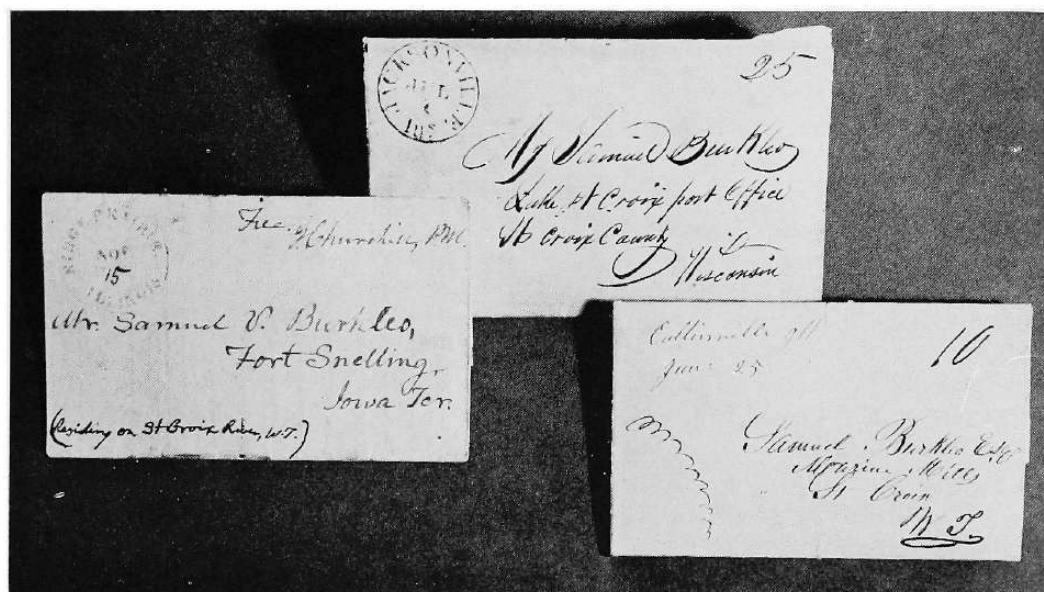 JACKSONVILLE
JUL
25
Mr Samuel Burkleo
Lake St Croix post Office
St Croix County
Wisconsin
PRAIRIE
NOV
15
ILLINOIS
Free.
Churchill, P.M.
Mr. Samuel V. Burkleo,
Fort Snelling,
Iowa Ter.
(Residing on St Croix River, W.T.)
Collinsville Ill
June 25
10
Samuel Burkleo Esq
Marine Mills
St Croix
W T.